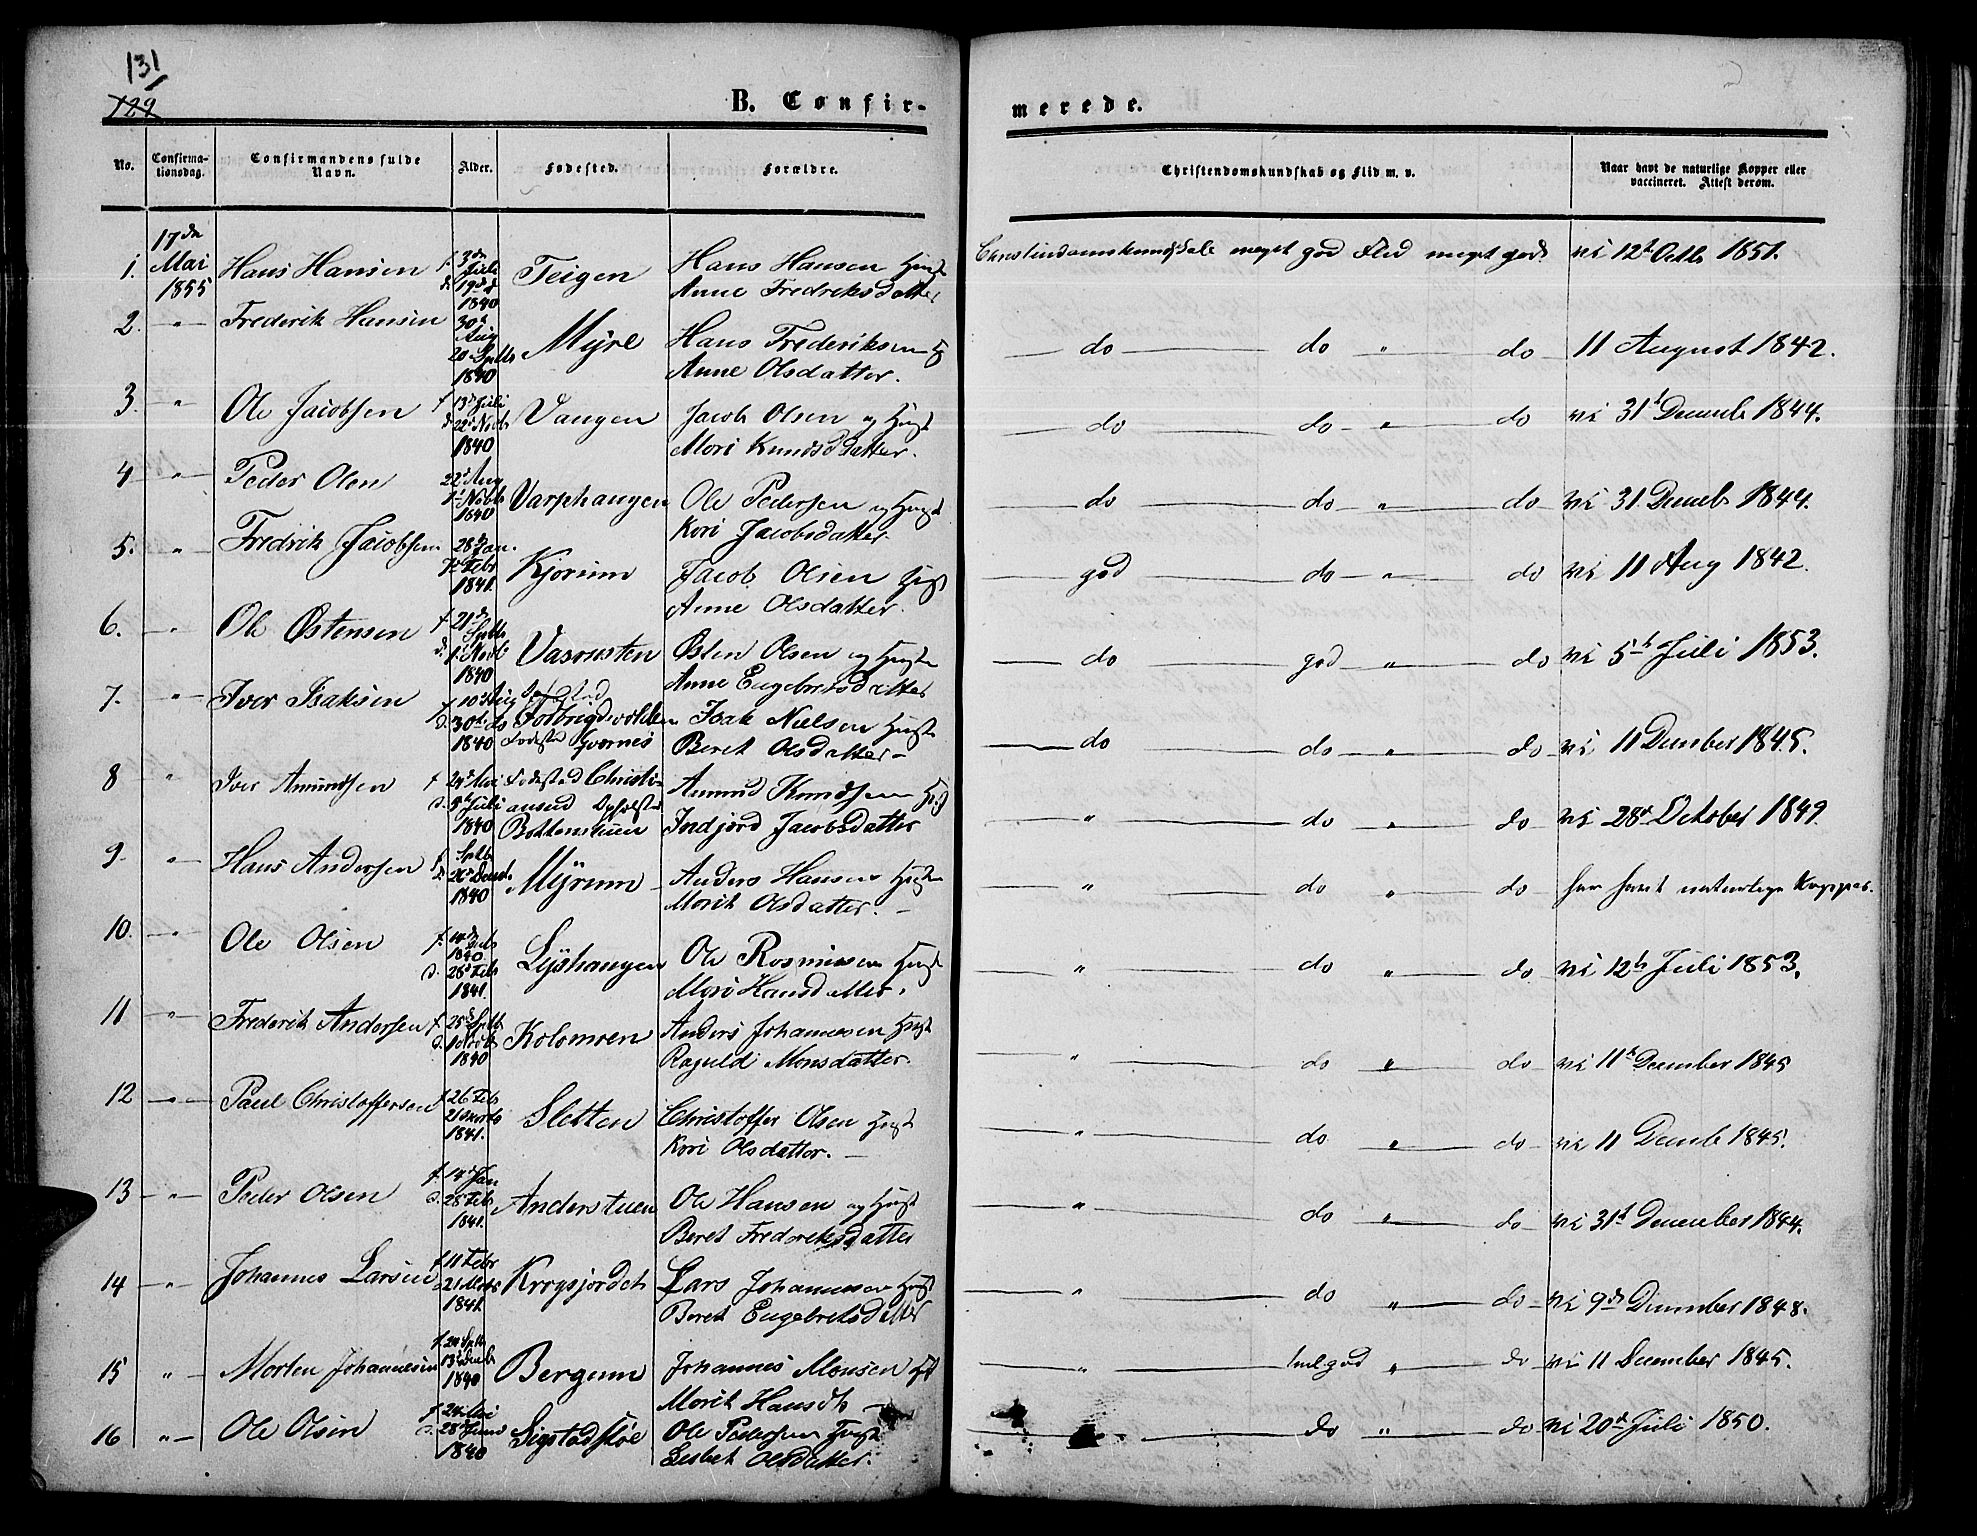 131
129
B. Confir-
merede.
No.
Confirma-
tionsdag.
Confirmandens fulde
Navn.
Alder.
Fødested.
Forældre.
Christendomskundskab og Flid m. v.
Naar havt de naturlige Kopper eller
vaccineret. Attest derom.
1. 17de Mai 1855 Hans Hansen f. 3de Juli d. 19de 1840 Teigen Hans Hansen Anne Fredriksdatter Christendomskundskab meget god Flid meget god. 12t Octb 1851.
2. " Frederik Hansen 30 Aug 20 Septb 1840 Myre Hans Frederiksen Anne Olsdatter. do do " do 11 August 1842.
3. " Ole Jacobsen f 13d Juli d 22d Novb 1840 Vangen Jacob Olsen og Mori Knudsdatter. do do " do 31t Decemb 1844.
4 " Peder Olsen 22d Aug 1840 Varphaugen Ole Pedersen og Kori Jacobsdatter do do " do 31 Decemb 1844.
5. " Fredrik Jacobsen 28 Jan. 7d Febr 1841. Kjorum Jacob Olsen Anne Olsdatter. god do " do 11 Aug 1842.
6. " Ole Østensen f 21de Septb d. 1. Novb 1840 Østen Olsen og Anne Engebretsdatter do god " do 5t Juli 1853.
7. " Iver Isaksen f 10d Aug d. 30t 1840 Isak Nielsen Beret Olsdatter do do " do 11 December 1845.
8 " Iver Amundsen f 24d Mai d. 5t Juli 1840 Fødested Christiansund Amund Knudsen Indjørd Jacobsdatter " do " do 28d October 1849.
9. " Hans Andersen Septb 26d Decemb. 1840 Myrum Anders Hansen Morit Olsdatter. " do " do har havt naturlige Kopper.
10. " Ole Olsen f. 14de 1840 d. 28d Feb 1841. Lyshaugen Ole Rasmusen Mori Hansdatter. " do " do 12t Juli 1853.
11 " Frederik Andersen f. 25d Septb d. 1 Novb 1840 Kolomoen Anders Johannesen Raguld Monsdatter. " do " do 11t December 1845
12 " Paul Christoffersen f 26 Feb 21 Marts 1841. Sletten Christoffer Olsen Kori Olsdatter. " do " do 11 Decemb 1845.
13 " Peder Olsen f. 14d Jan d. 28d Feb 1841. Anderstuen Ole Hansen og Beret Frederiksdatter " do " do 31t December 1844.
14 " Johannes Larsen f 11 Febr 21 Marts 1841. Krogsjordet Lars Johannesen Beret Engebretsdatter " do " do 9de December 1848.
15 " Morten Johannesen f. 24 Septb 13d Decemb 1840 Bergum Johannes Monsen Morit Hansdt " do 11 December 1845.
16 " Ole Olsen f 24 Mai d. 28d Juni 1840 Ole Pedersen Lisbet Olsdatter. do " do 20d Juli 1850.